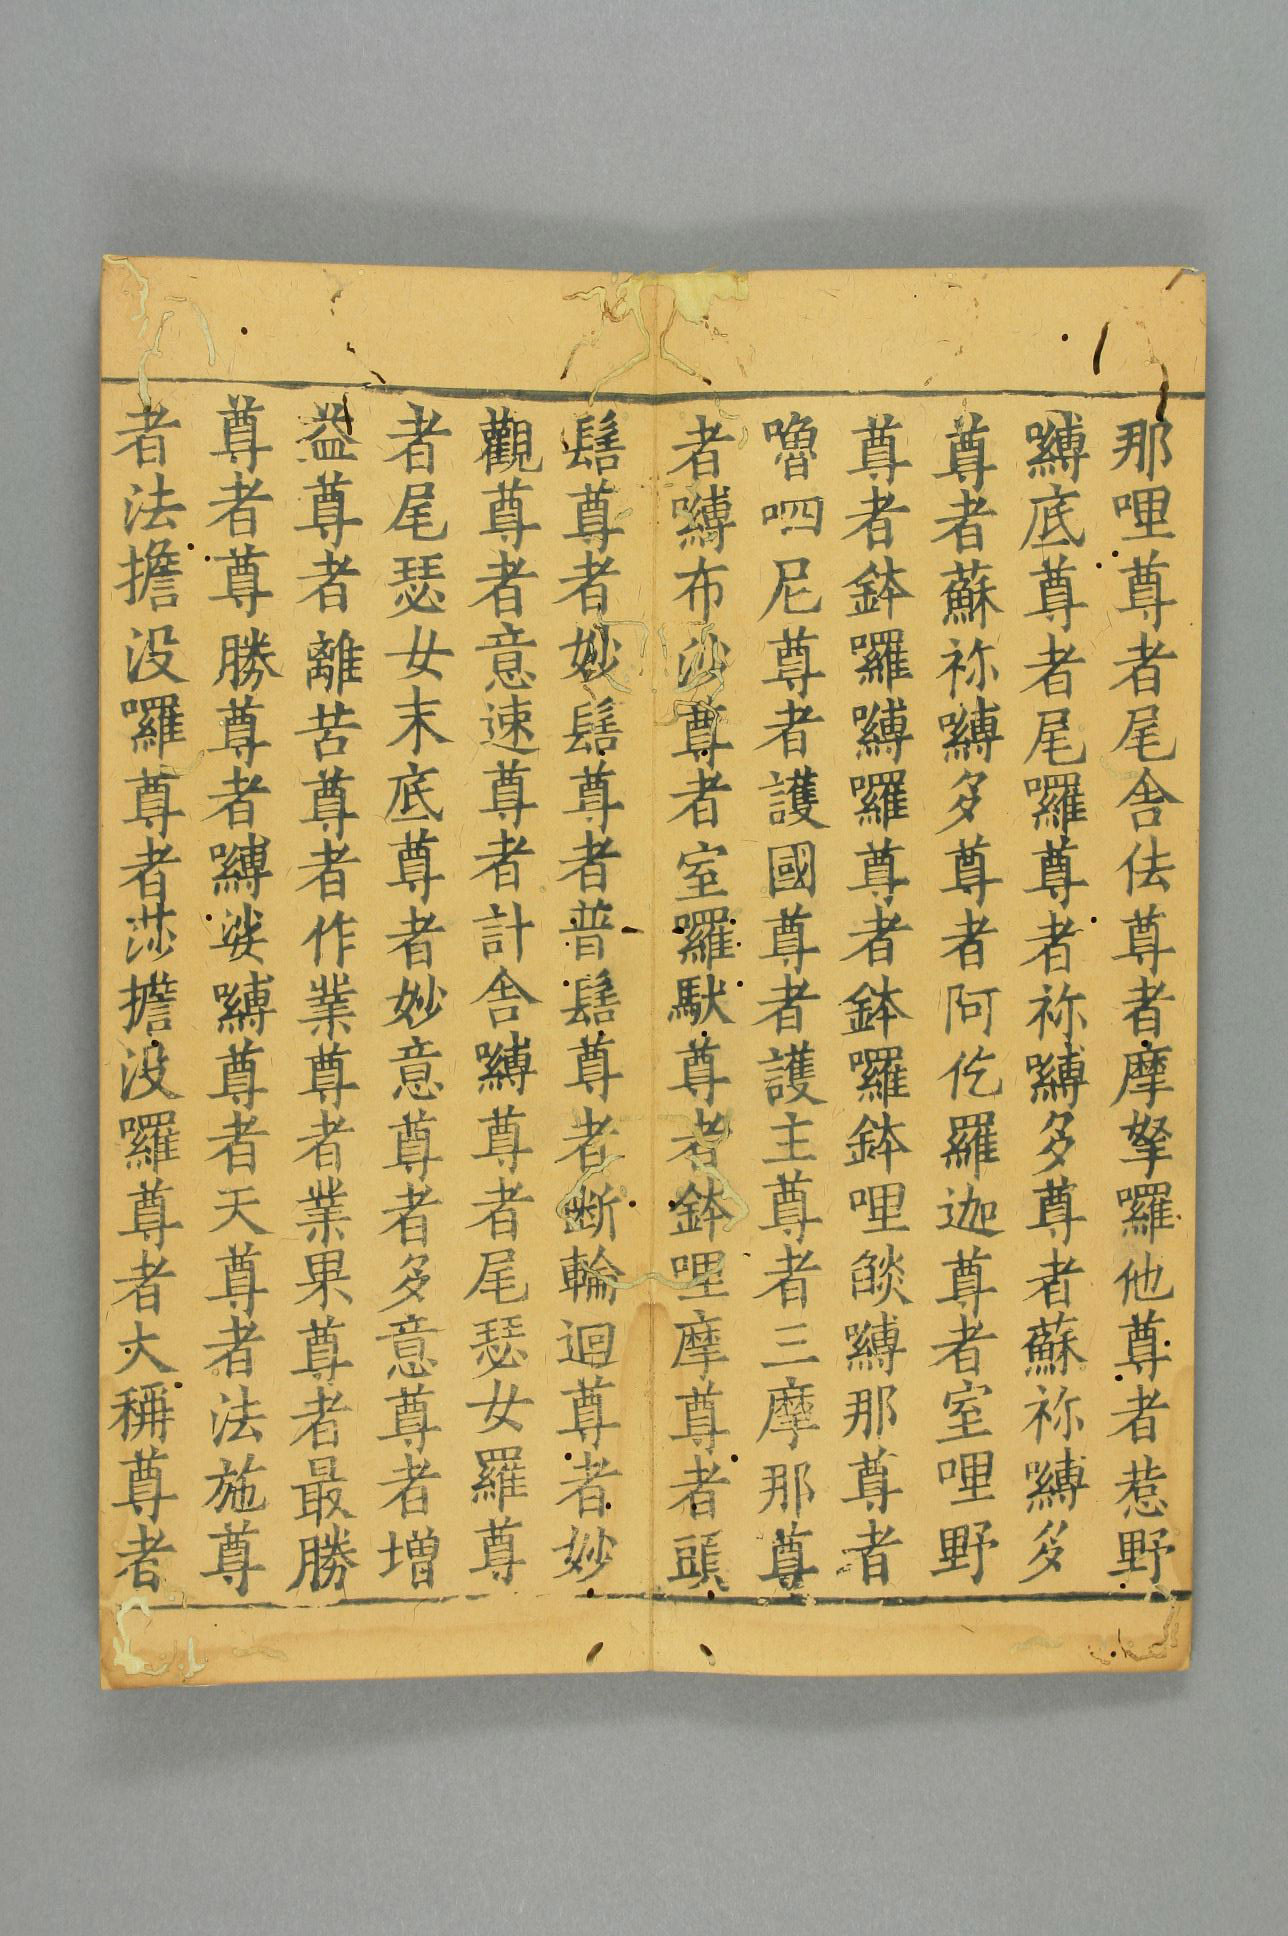 那哩尊者尾舍佉尊者摩拏囉他尊者惹野
嚩底尊者尾囉尊者祢嚩多尊者蘇祢嚩多
尊者蘇祢嚩多尊者阿仡羅迦尊者室哩野
尊者鉢囉嚩囉尊者鉢囉鉢哩餤嚩那尊者
嚕呬尼尊者護國尊者護主尊者三摩那尊
者嚩布沙尊者室囉馱尊者鉢哩摩尊者頭
髻尊者妙髻尊者普髻尊者斷輪迴尊者妙
觀尊者意速尊者計舍嚩尊者尾瑟女羅尊
者尾瑟女末底尊者妙意尊者多意尊者增
益尊者離苦尊者作業尊者業果尊者最勝
尊者尊勝尊者嚩娑嚩尊者天尊者法施尊
者法擔没囉尊者莎擔没囉尊者大稱尊者